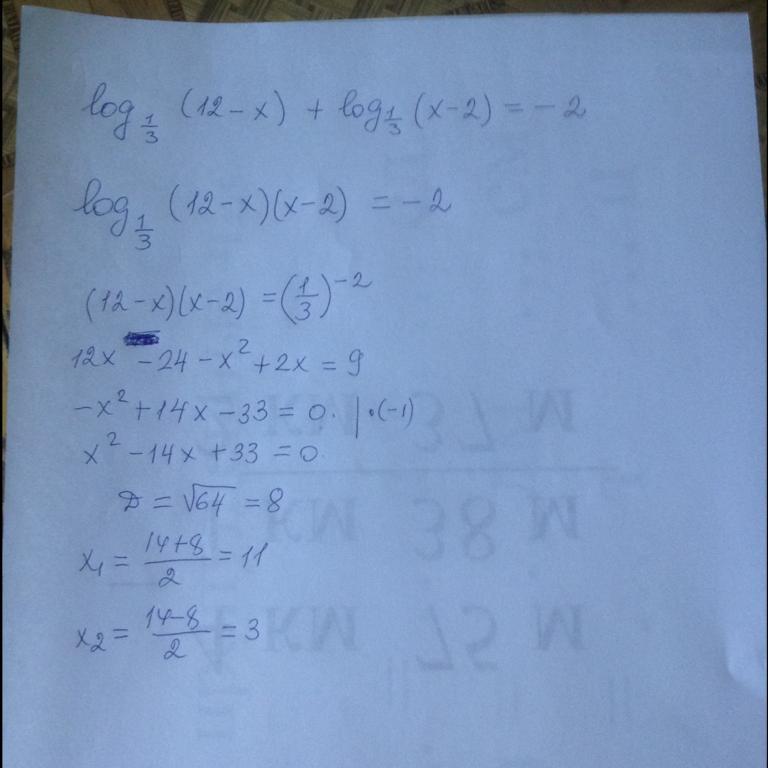 log_{1/3} (12-x) + log_{1/3} (x-2) = -2
log_{1/3} (12-x)(x-2) = -2
(12-x)(x-2) = (1/3)^{-2}
12x -24 - x² + 2x = 9
-x² + 14x - 33 = 0. |·(-1)
x² - 14x + 33 = 0
D = √64 = 8
x₁ = (14+8)/2 = 11
x₂ = (14-8)/2 = 3